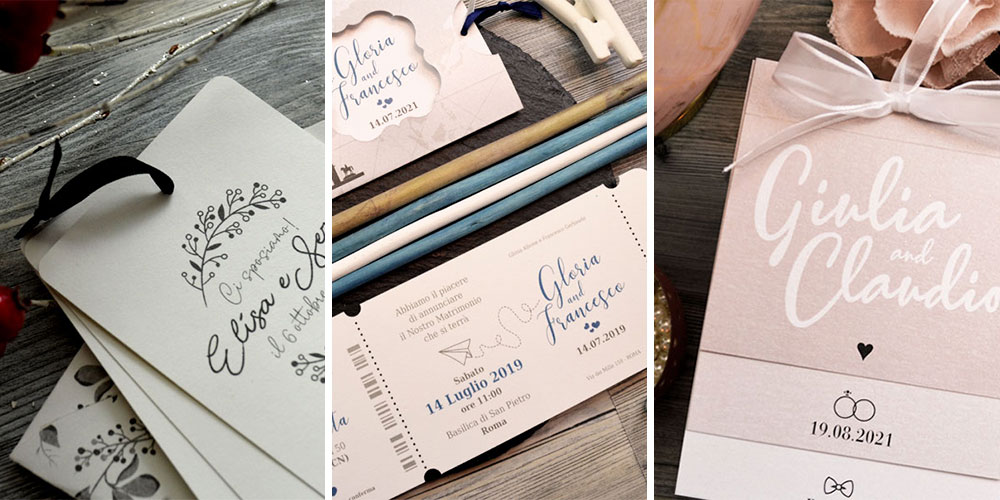 Ci sposiamo!
Elisa e
il 6 ottobre
Gloria
and
Francesco
14.07.2021
Abbiamo il piacere
di annunciare
il Nostro Matrimonio
che si terrà
Sabato
14 Luglio 2019
ore 11:00
Basilica di San Pietro
Roma
Gloria
and
Francesco
14.07.2019
Via dei Mille 110 - ROMA
50
CN)
conferma
Giulia
and
Claudio
19.08.2021